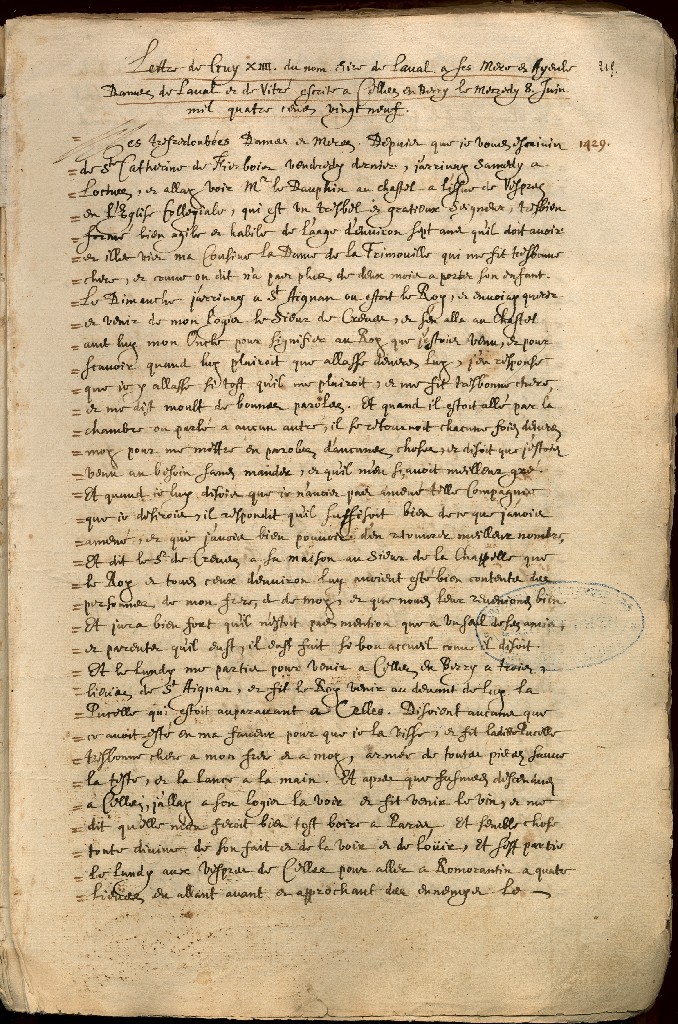 Lettre de Guy XIIII. du nom Sire de Laval a ses Mere et Ayeule
Dames de Laval et de Vitré escrite a Celles en Berry le Mercredy 8 Juin
mil quatre cens vingt neuf.
1429.
es tresredoubtées Dames et Meres. Depuis que je vous escrivis
de Ste Catherine de Fierbois Vendredy dernier, j'arrivay Samedy a
Loches, et allay voir Mr le Dauphin au chastel a l'issue de Vespres
en L'Eglise Collegiale, qui est un tresbel et gratieux Seigneur, tresbien
formé bien agile et habile de l'aage d'environ sept ans qu'il doit avoir
et illec vis ma Cousine la Dame de la Trimouille qui me fit tresbonne
chere, et comme on dit n'a pas plus de deux mois a porter son enfant.
Le Dimanche j'arrivay a St Aignan ou estoit le Roy, et envoiay querir
et venir de mon logis le Sieur de Creves, et s'en alla au Chastel
avec luy mon Oncle pour signifier au Roy que j'estois venu, et pour
scavoir quand luy plairoit que allasse devers luy, j'eu response
que je y allasse si tost qu'il me plairoit, et me fit tresbonne chere,
et me dist moult de bonnes paroles. Et quand il estoit allé par la
chambre ou parlé a aucun autre, il se retournoit chacune fois devers
moy pour me mettre en paroles d'aucunes choses, et disoit que j'estois
venu au besoin sans mander, et qu'il m'en sçavoit meilleur gré.
Et quand je luy disois que je n'avois pas amené telle Compagnie
que je desirois, il respondit qu'il suffisoit bien de ce que j'avois
amené, et que j'avois bien pouvoir d'en recouvrer meilleur nombre,
Et dit le Sr de Creves a sa maison au Sieur de la Chappelle que
le Roy et tous ceux d'environ luy avoient esté bien contents des
personnes de mon frere, et de moy, et que nous leur revenions bien.
Et jura bien fort qu'il n'estoit pas mention que a un seul de ses amis,
et parents qu'il eust, il eust fait si bon accueil comme il disoit.
Et le Lundy me partis pour venir a Celles en Berry a trois,
lieues de St Aignan, et fit le Roy venir au devant de luy la
Pucelle qui estoit auparavant a Celles. Disoient aucuns que
ce avoit esté en ma faveur pour que je la visse, et fit ladite Pucelle
tresbonne chere a mon frere et a moy, armée de toutes pieces sauve
la teste, et la lance a la main. Et apres que fusmes descendus
a Celles, j'allay a son logis la voir et fit venir le vin, et me
dit qu'elle m'en feroit bien tost boire a Paris. Et semble chose
toute divine de son fait et de la voir et de l'ouir, Et s'est partie
le Lundy aux Vespres de Celles pour aller a Romorantin a quatre
lieues en allant avant et approchant des ennemys. Le